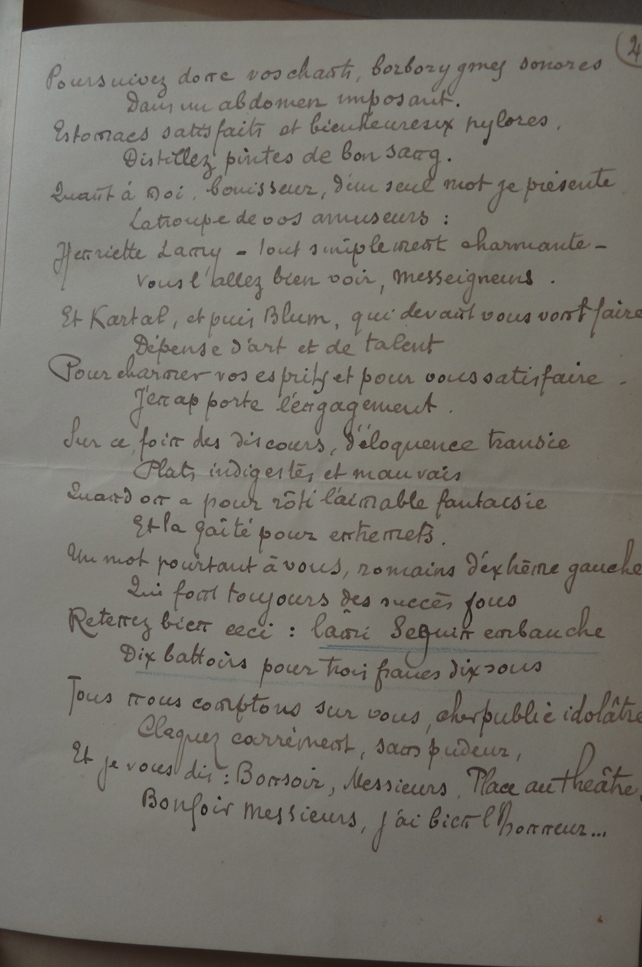 2
Poursuivez donc vos chants, borborygmes sonores
Dans un abdomen imposant.
Estomacs satisfaits et bienheureux pylores,
Distillez pintes de bon sang.
Quant à moi, bonisseur, d'un seul mot je présente
La troupe de vos amuseurs :
Henriette Lamy - tout simplement charmante -
Vous l'allez bien voir, messeigneurs.
Et Kartal, et puis Blum, qui devant vous vont faire
Dépense d'art et de talent
Pour charmer vos esprits et pour vous satisfaire.
J'en apporte l'engagement.
Sur ce, foin des discours, d'éloquence transie
Plats indigestes et mauvais
Quand on a pour rôti l'aimable fantaisie
Et la gaîté pour entremets.
Un mot pourtant à vous, romains d'extrême gauche
Qui font toujours des succès fous
Retenez bien ceci : l'ami Seguin embauche
Dix battoirs pour trois francs dix sous
Tous nous comptons sur vous, cher public idolâtre
Claquez carrément, sans pudeur,
Et je vous dis : Bonsoir, Messieurs, Place au théâtre,
Bonsoir messieurs, j'ai bien l'honneur...